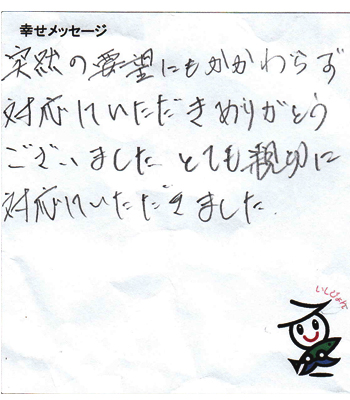 幸せメッセージ
突然の要望にもかかわらず
対応していただきありがとう
ございました とても親切に
対応していただきました.